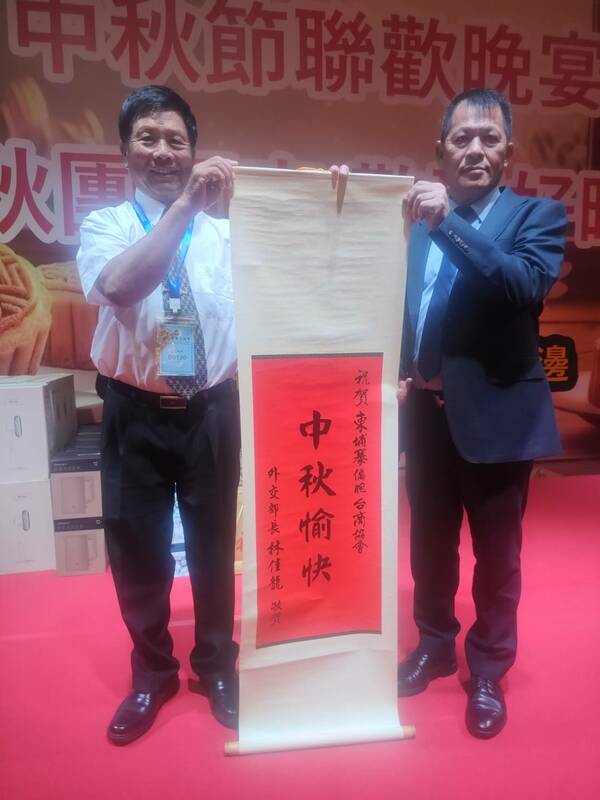 中秋節聯歡晚宴
秋團
邊
祝賀柬埔寨備照台商協會
中秋愉快
外交部長林佳龍 敬賀